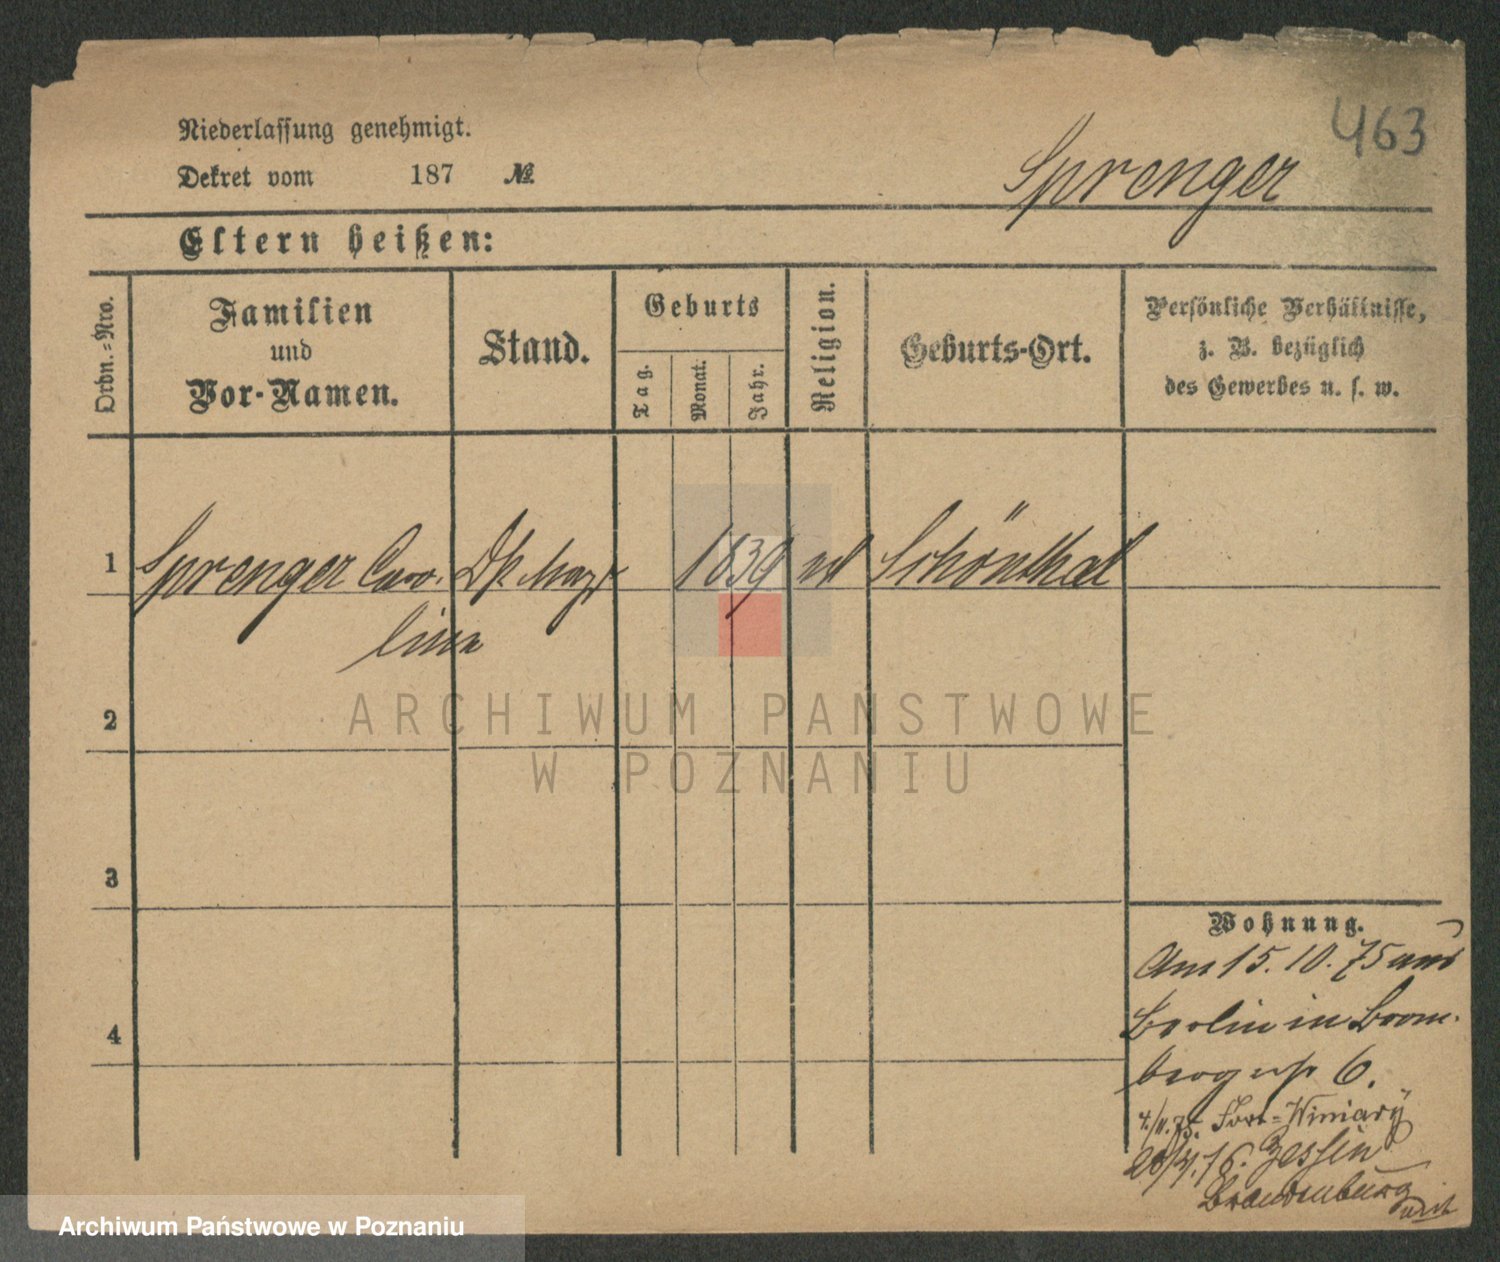 463
Niederlassung genehmigt.
Dekret vom 187 №
Sprenger
Eltern heißen:
Ordn.-Nro.
Familien
und
Vor-Namen.
Stand.
Geburts
Tag.
Monat.
Jahr.
Religion.
Geburts-Ort.
Persönliche Verhältnisse,
z. B. bezüglich
des Gewerbes u. s. w.
1 Sprenger Caro- 1839 Schönthal
line
2
3
4
Wohnung.
Am 15. 10. 75 aus
Berlin in Brom-
berger 6.
4/11.75. Fort-Winiary
Zessin
Brandenburg
ARCHIWUM PAŃSTWOWE
W POZNANIU
Archiwum Państwowe w Poznaniu